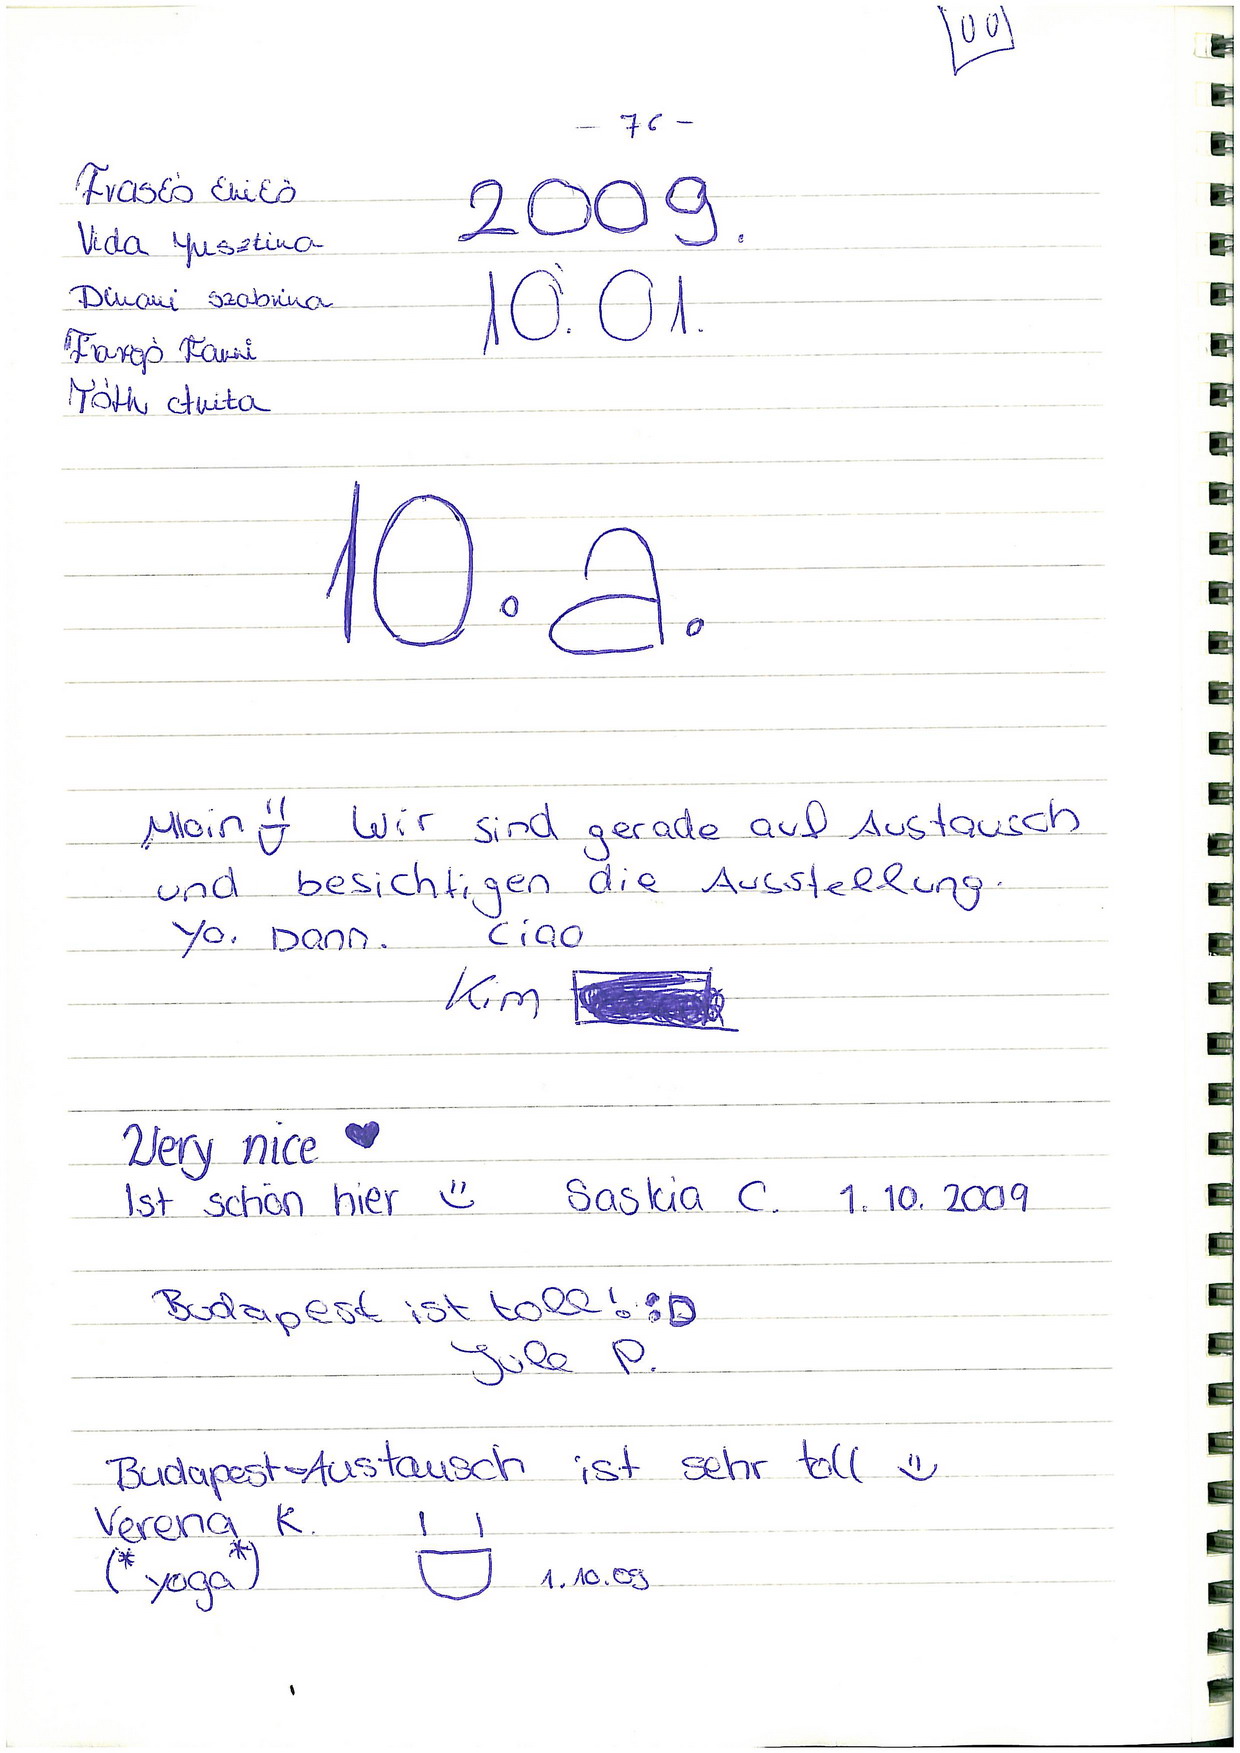 - 76 -
2009.
Vida Jusztina
10.01.
Dinani Szabrina
Fargó Fanni
Tóth Anita
10. a.
Moin Wir sind gerade auf Austausch
und besichtigen die Ausstellung.
Yo. Dann. Ciao
Kim
Very nice ♥
Ist schön hier Saskia C. 1. 10. 2009
Budapest ist toll! :D
Jule P.
Budapest-Austausch ist sehr toll
Verena K.
(*yoga*)
1.10.09